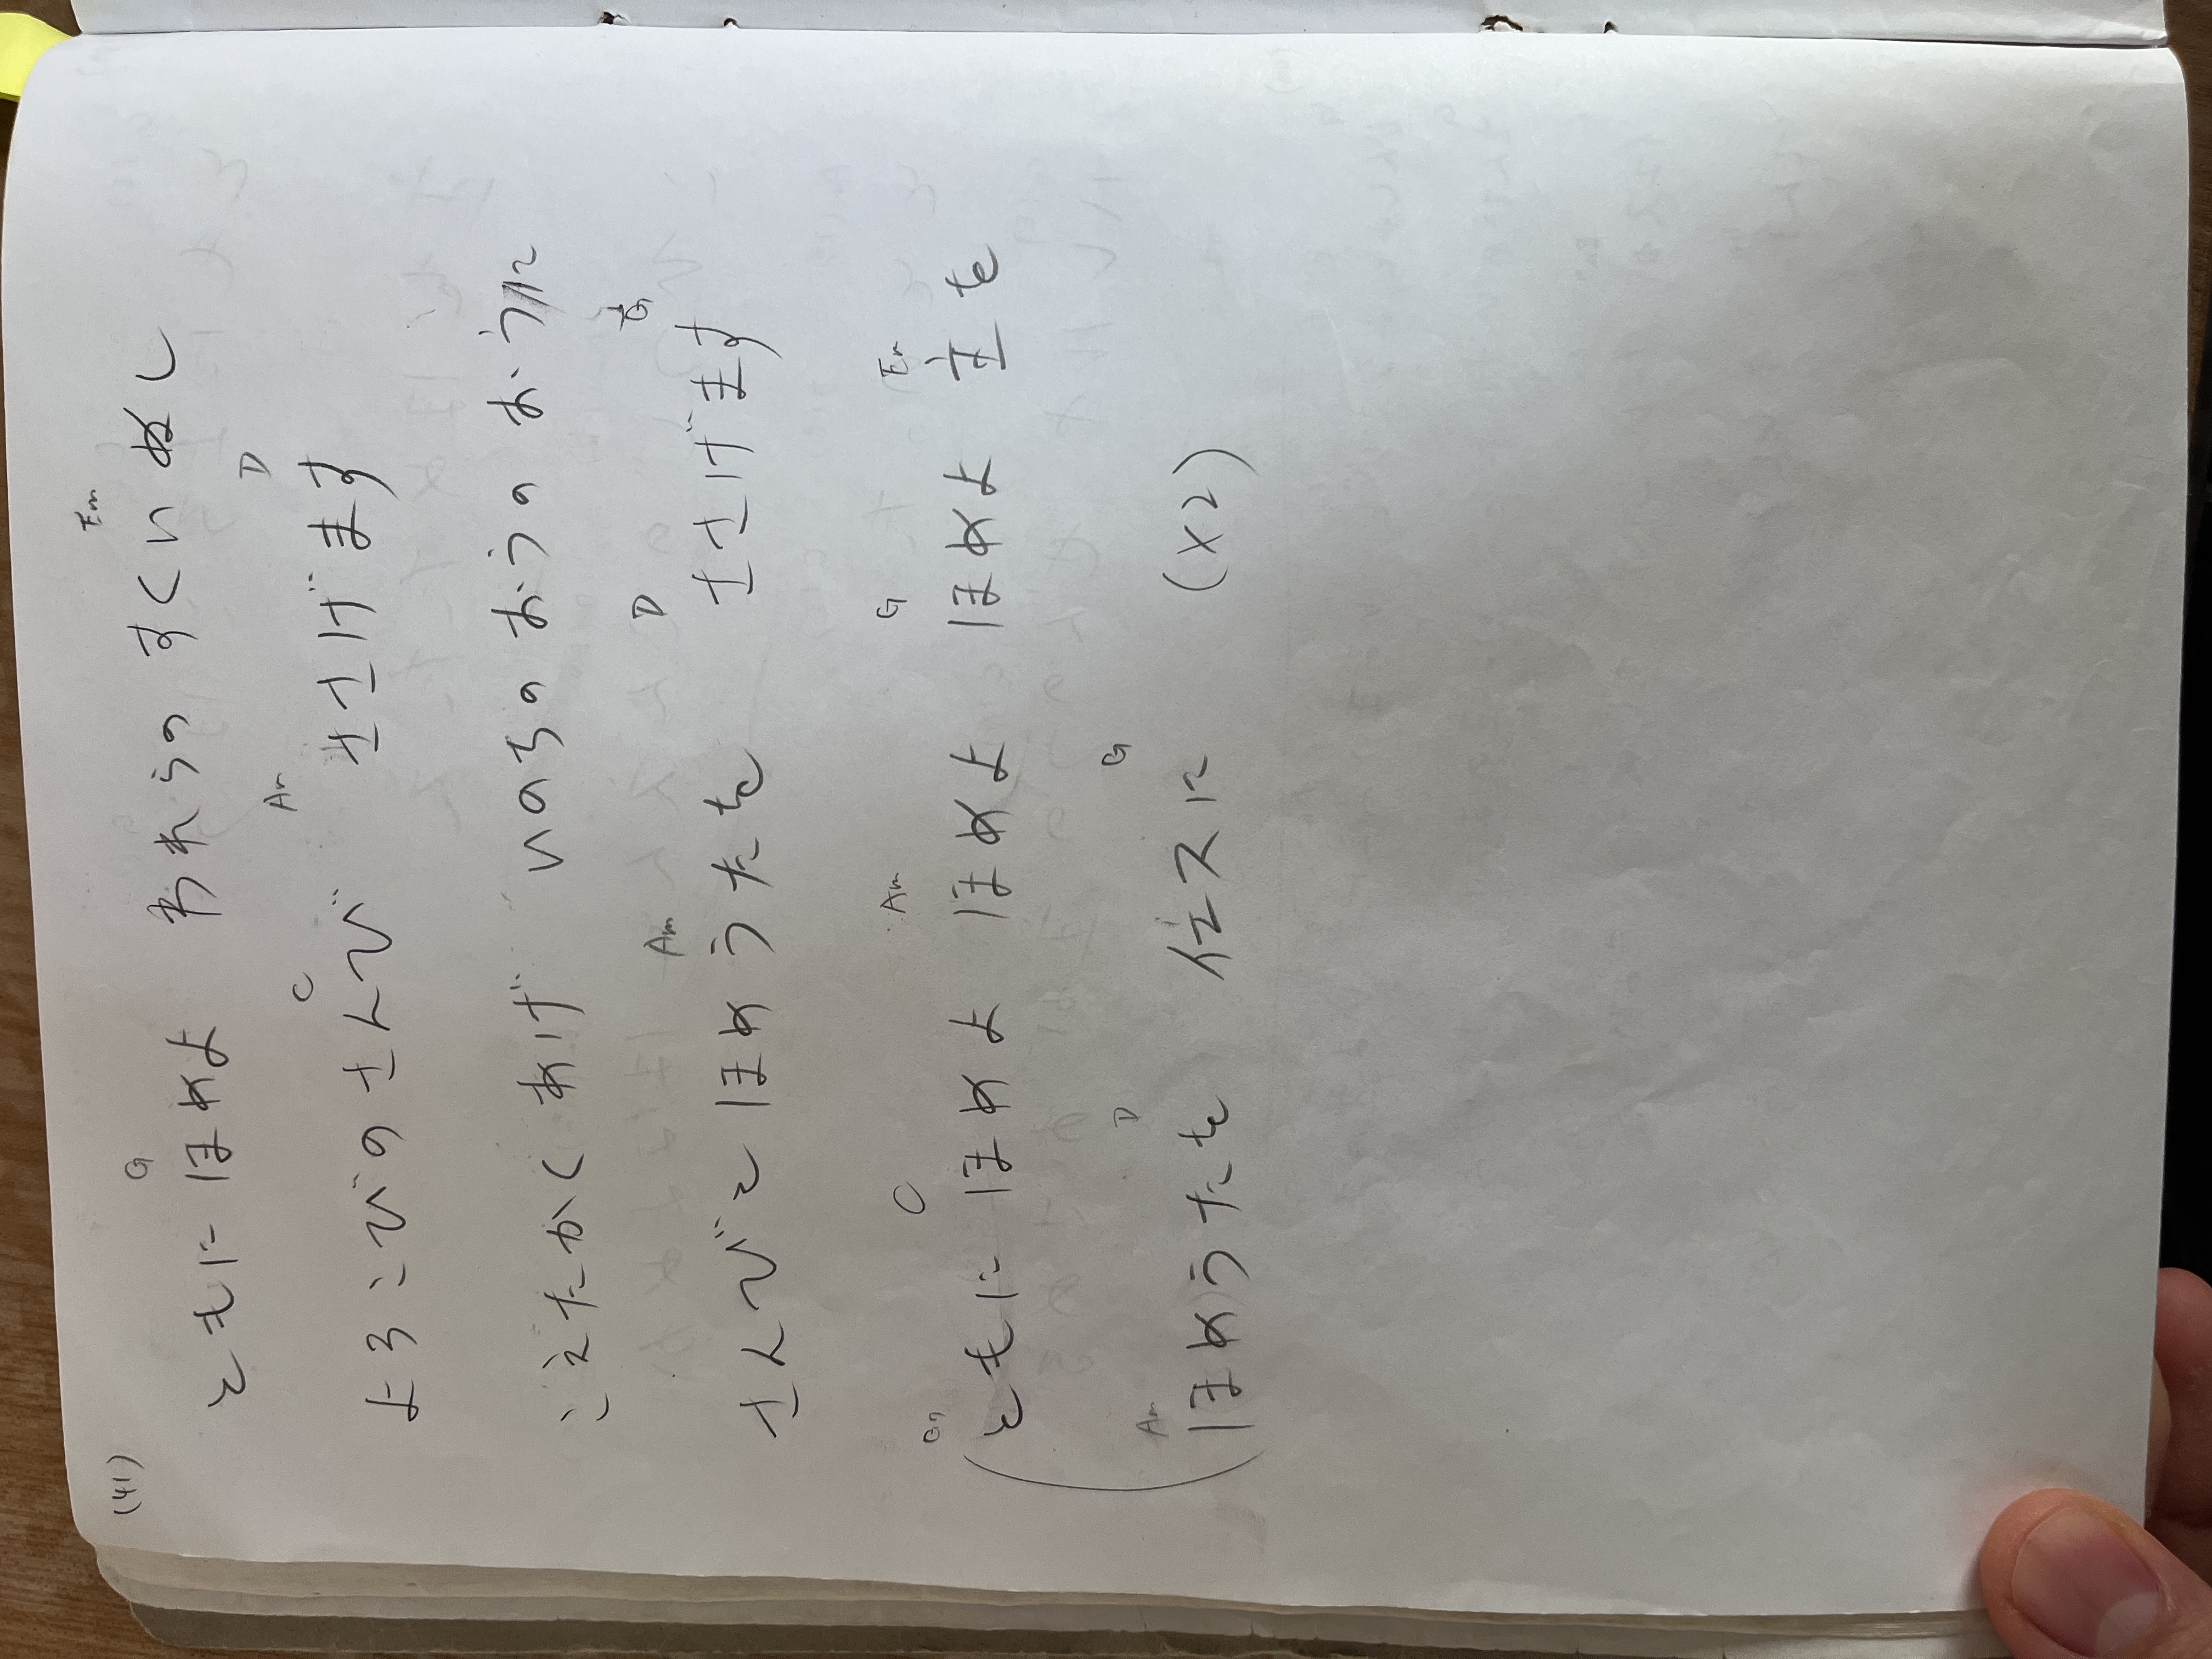 (41)
G Em
ともに ほめよ われらの すくいぬし
C Am D
よろこびの さんび ささげます
こえたかく あげ いのちの おうの おうに
Am D G
さんびと ほめうたを ささげます
G C Am G Em
ともに ほめよ ほめよ ほめよ 主を
Am D G
ほめうたを イエスに (x2)